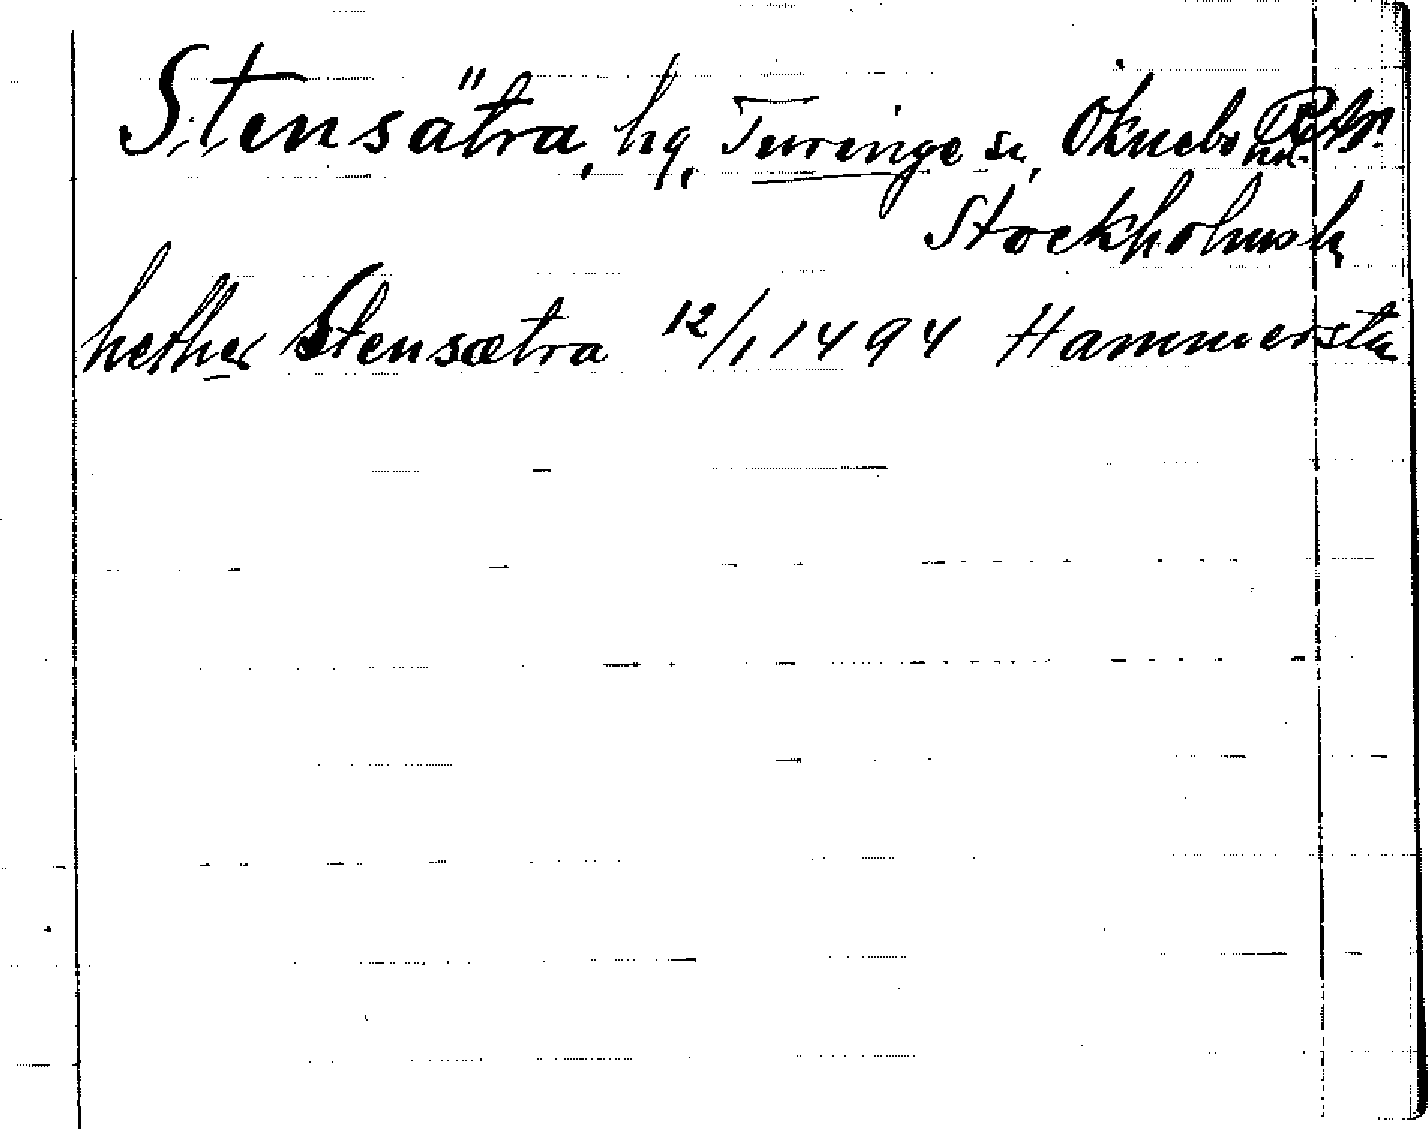 Stensätra, hg, Turinge sn, Öknebo hd.
Stockholms l.
hether Stensætra 12/1 1494 Hammersta